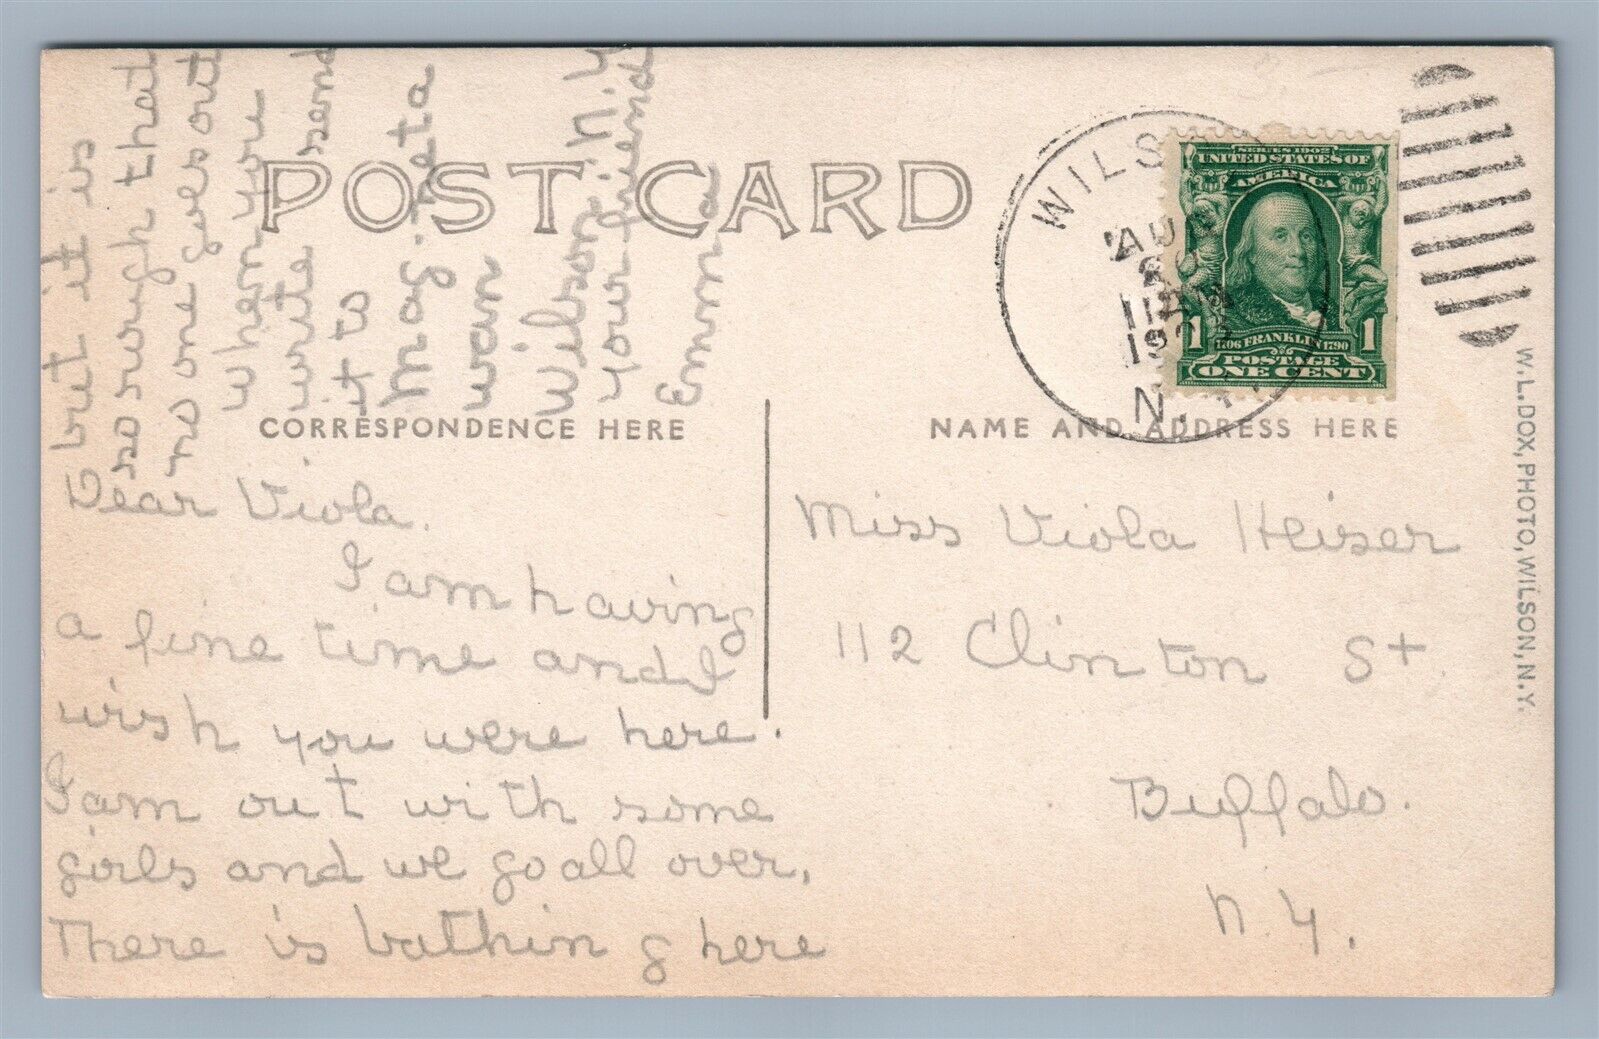 POST CARD
CORRESPONDENCE HERE
NAME AND ADDRESS HERE
Dear Viola.
I am having
a fine time and I
wish you were here.
I am out with some
girls and we go all over,
There is bathing here
but it is
so rough that
no one goes out
when you
write send
it to
wan
Wilson N.Y
your friend
Emma
Miss Viola Heiser
112 Clinton St
Buffalo.
N.Y.
WILS
AUG
N.Y.
SERIES 1902
UNITED STATES OF
AMERICA
1 1
1706 FRANKLIN 1790
POSTAGE
ONE CENT
W.L.DOX, PHOTO, WILSON, N.Y.